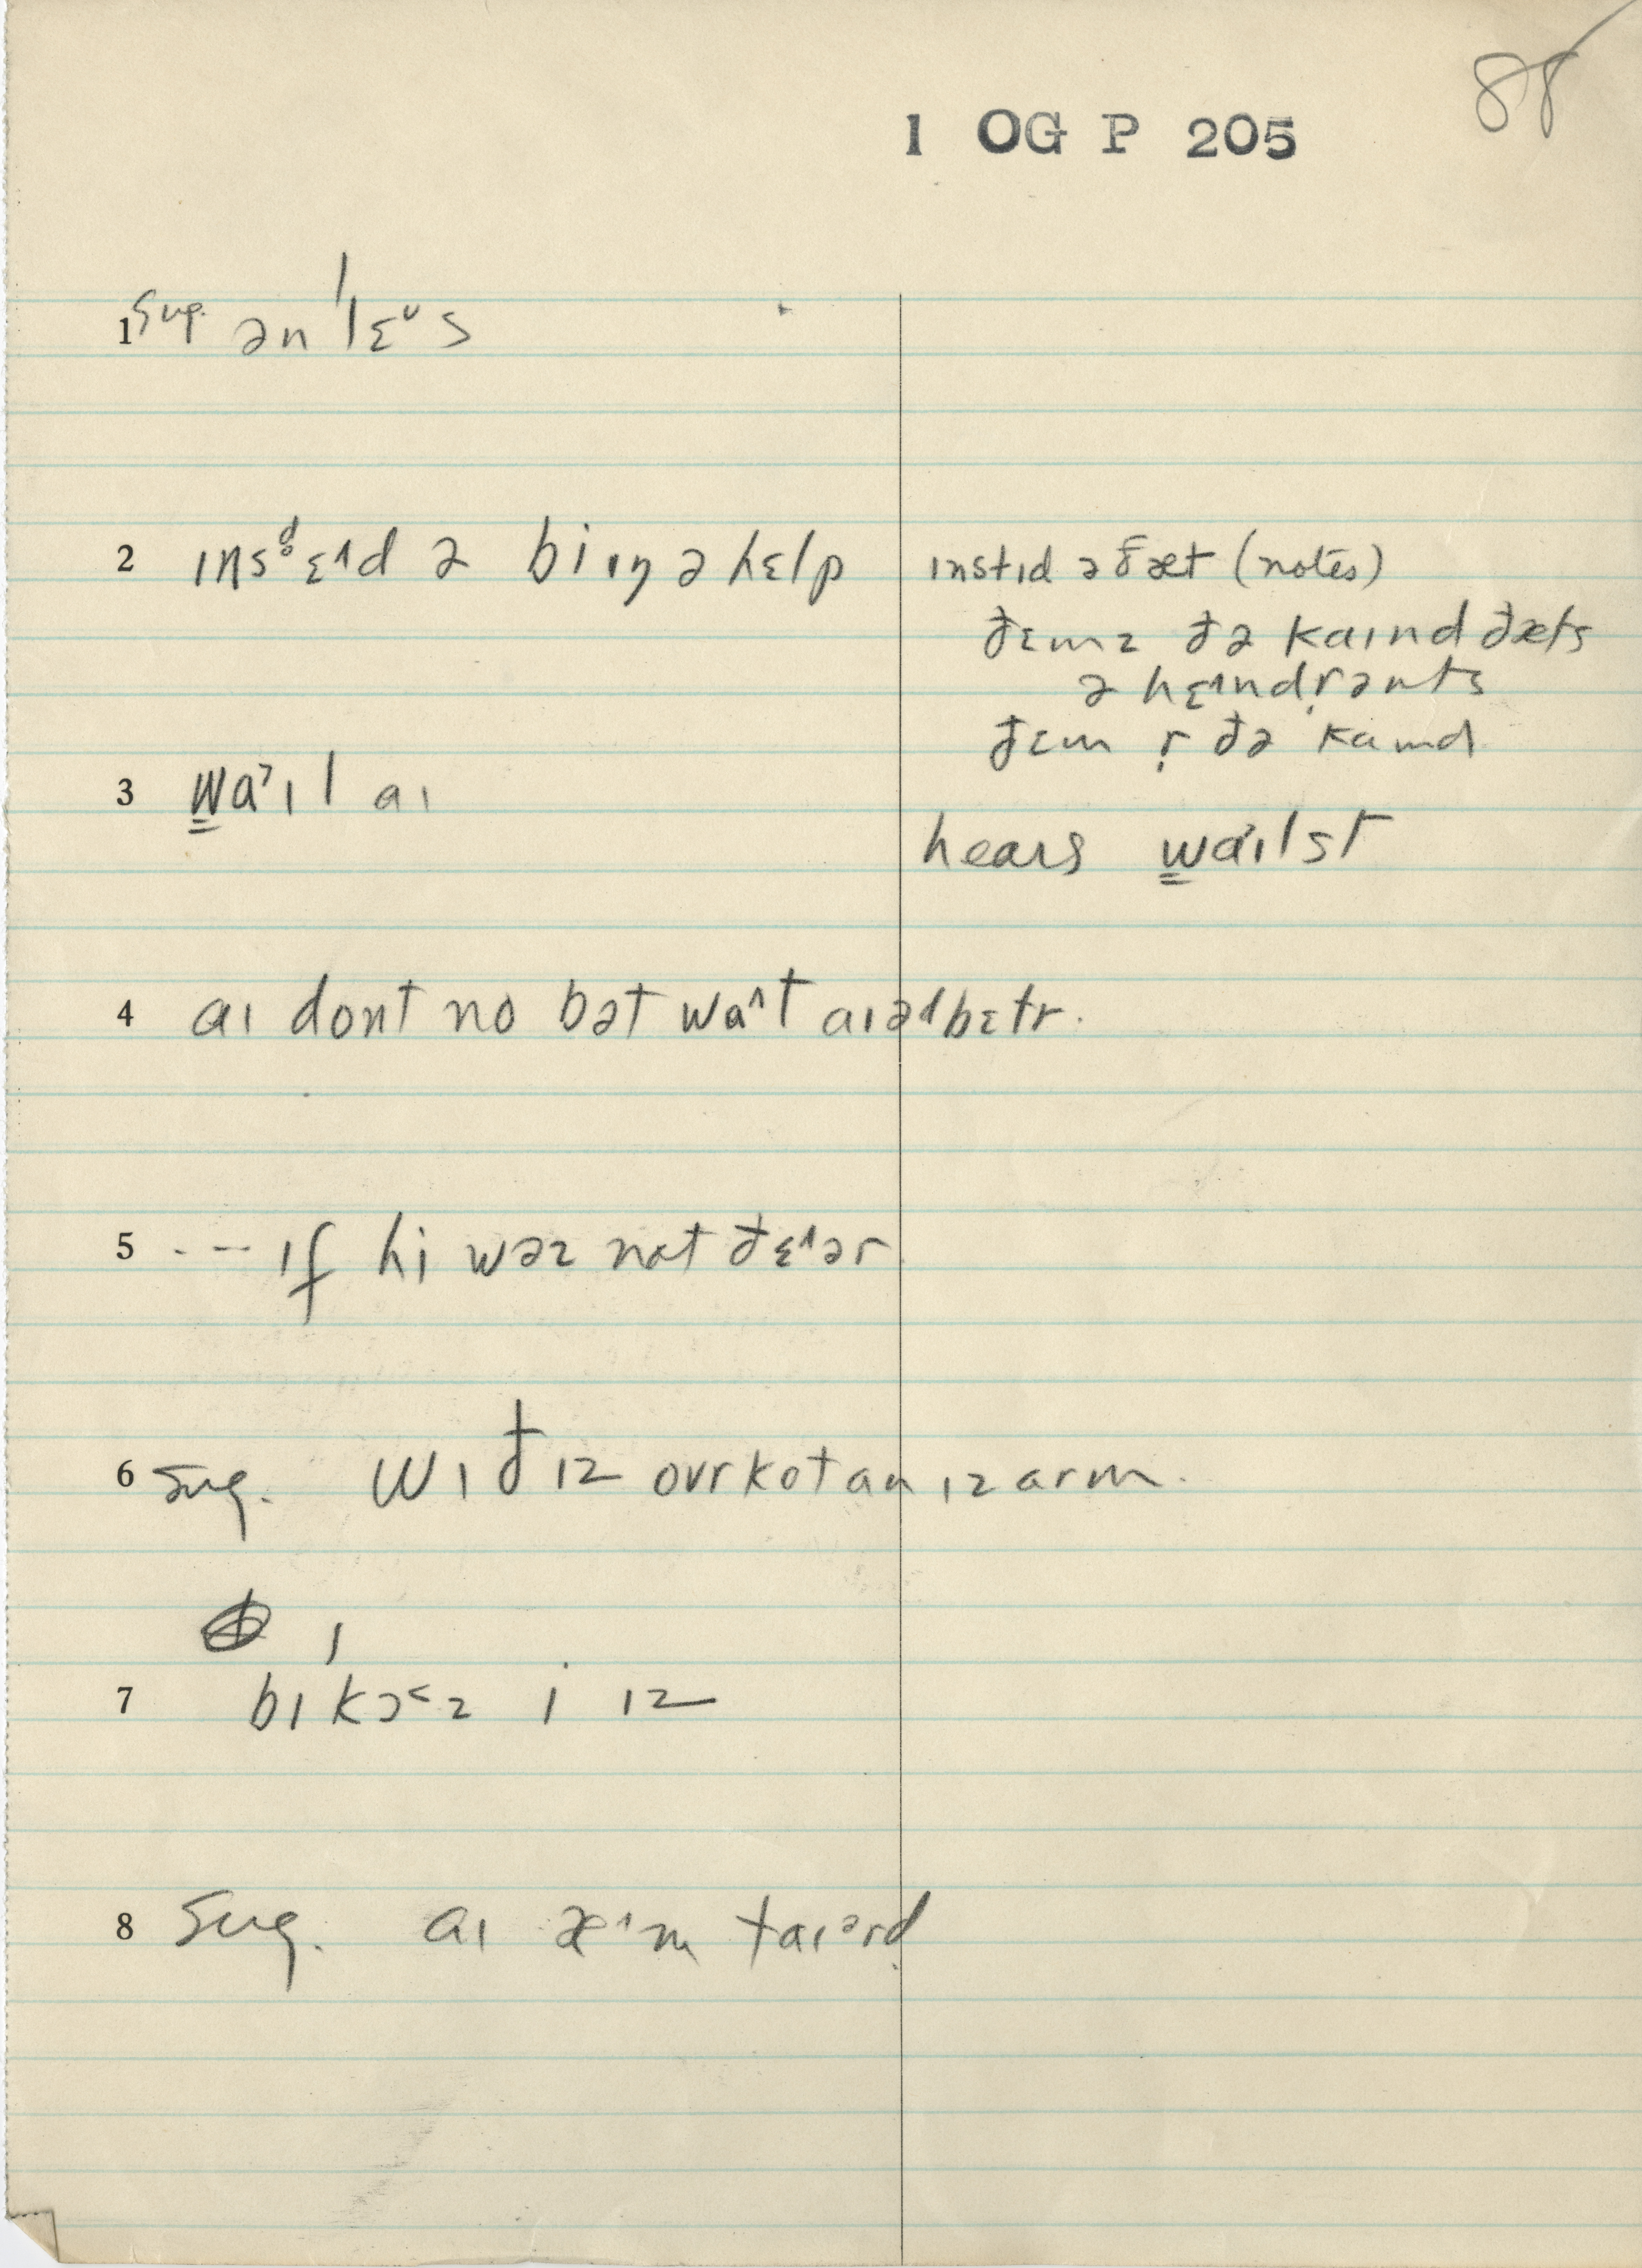 88
1 OG P 205
1 Sug. ən'lɛᵘs
2 ɪnsd̥ɛɪd ə biɪŋ ə hɛlp
ɪnstɪd ə ðæt (notes)
ðɛmz ðə kaɪnd ðæts
ə hɛ˄ndr̩ənts
ðɛm r̩ ðə kaɪnd
3 w̳a˃ɪl aɪ
hears w̳a˃ɪlst
4 aɪ dont no bət wa˄t aɪəd bɛtr.
5 --- ɪf hi wəz nat ðɛ˄ər
6 Sug. wɪð ɪz ovrkot an ɪz arm.
7 bɪ'kɔ˂z i ɪz
8 Sug. aɪ æ˄m taɪərd